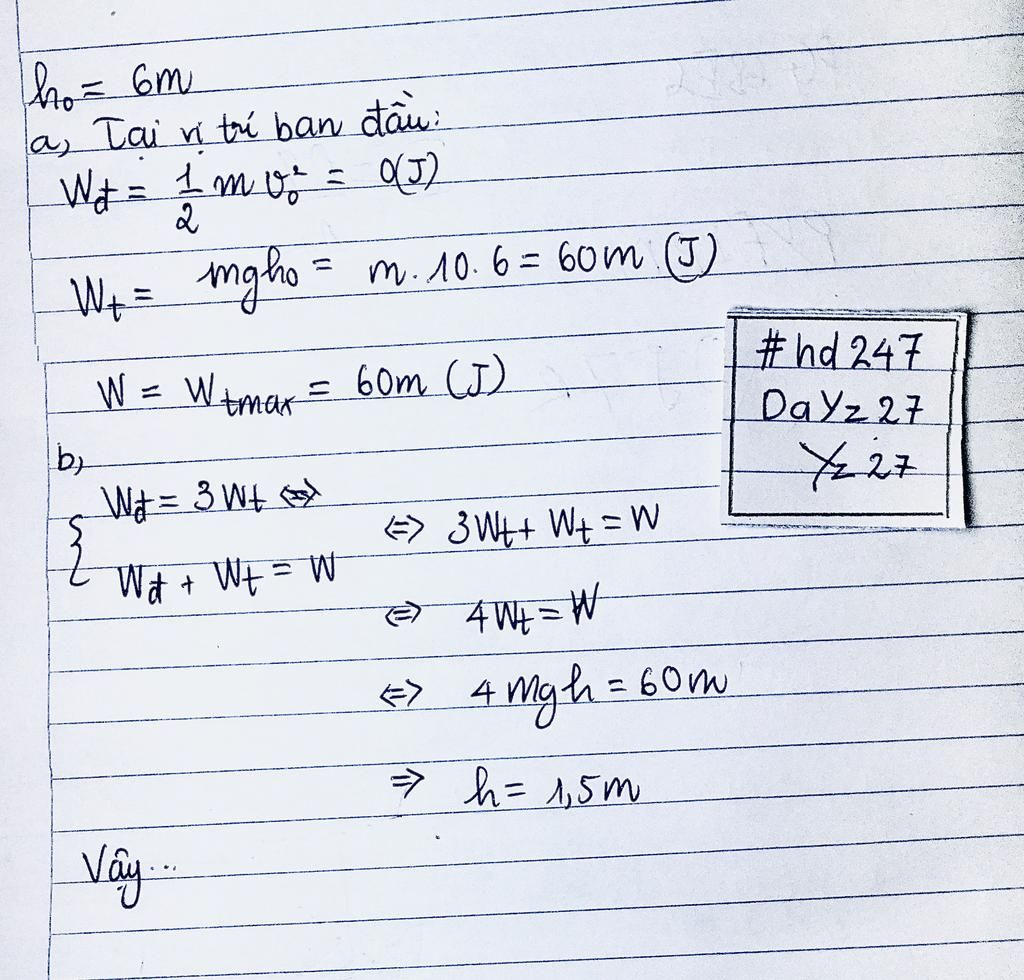 h₀ = 6m
a, Tại vị trí ban đầu:
Wđ = 1/2 m v₀² = 0(J)
Wt = mgh₀ = m.10.6 = 60m (J)
W = Wtmax = 60m (J)
#hd247
DaYz27
Yz27
b,
{ Wđ = 3Wt ⇔
Wđ + Wt = W
⇔ 3Wt + Wt = W
⇔ 4Wt = W
⇔ 4mgh = 60m
⇒ h = 1,5m
Vậy...